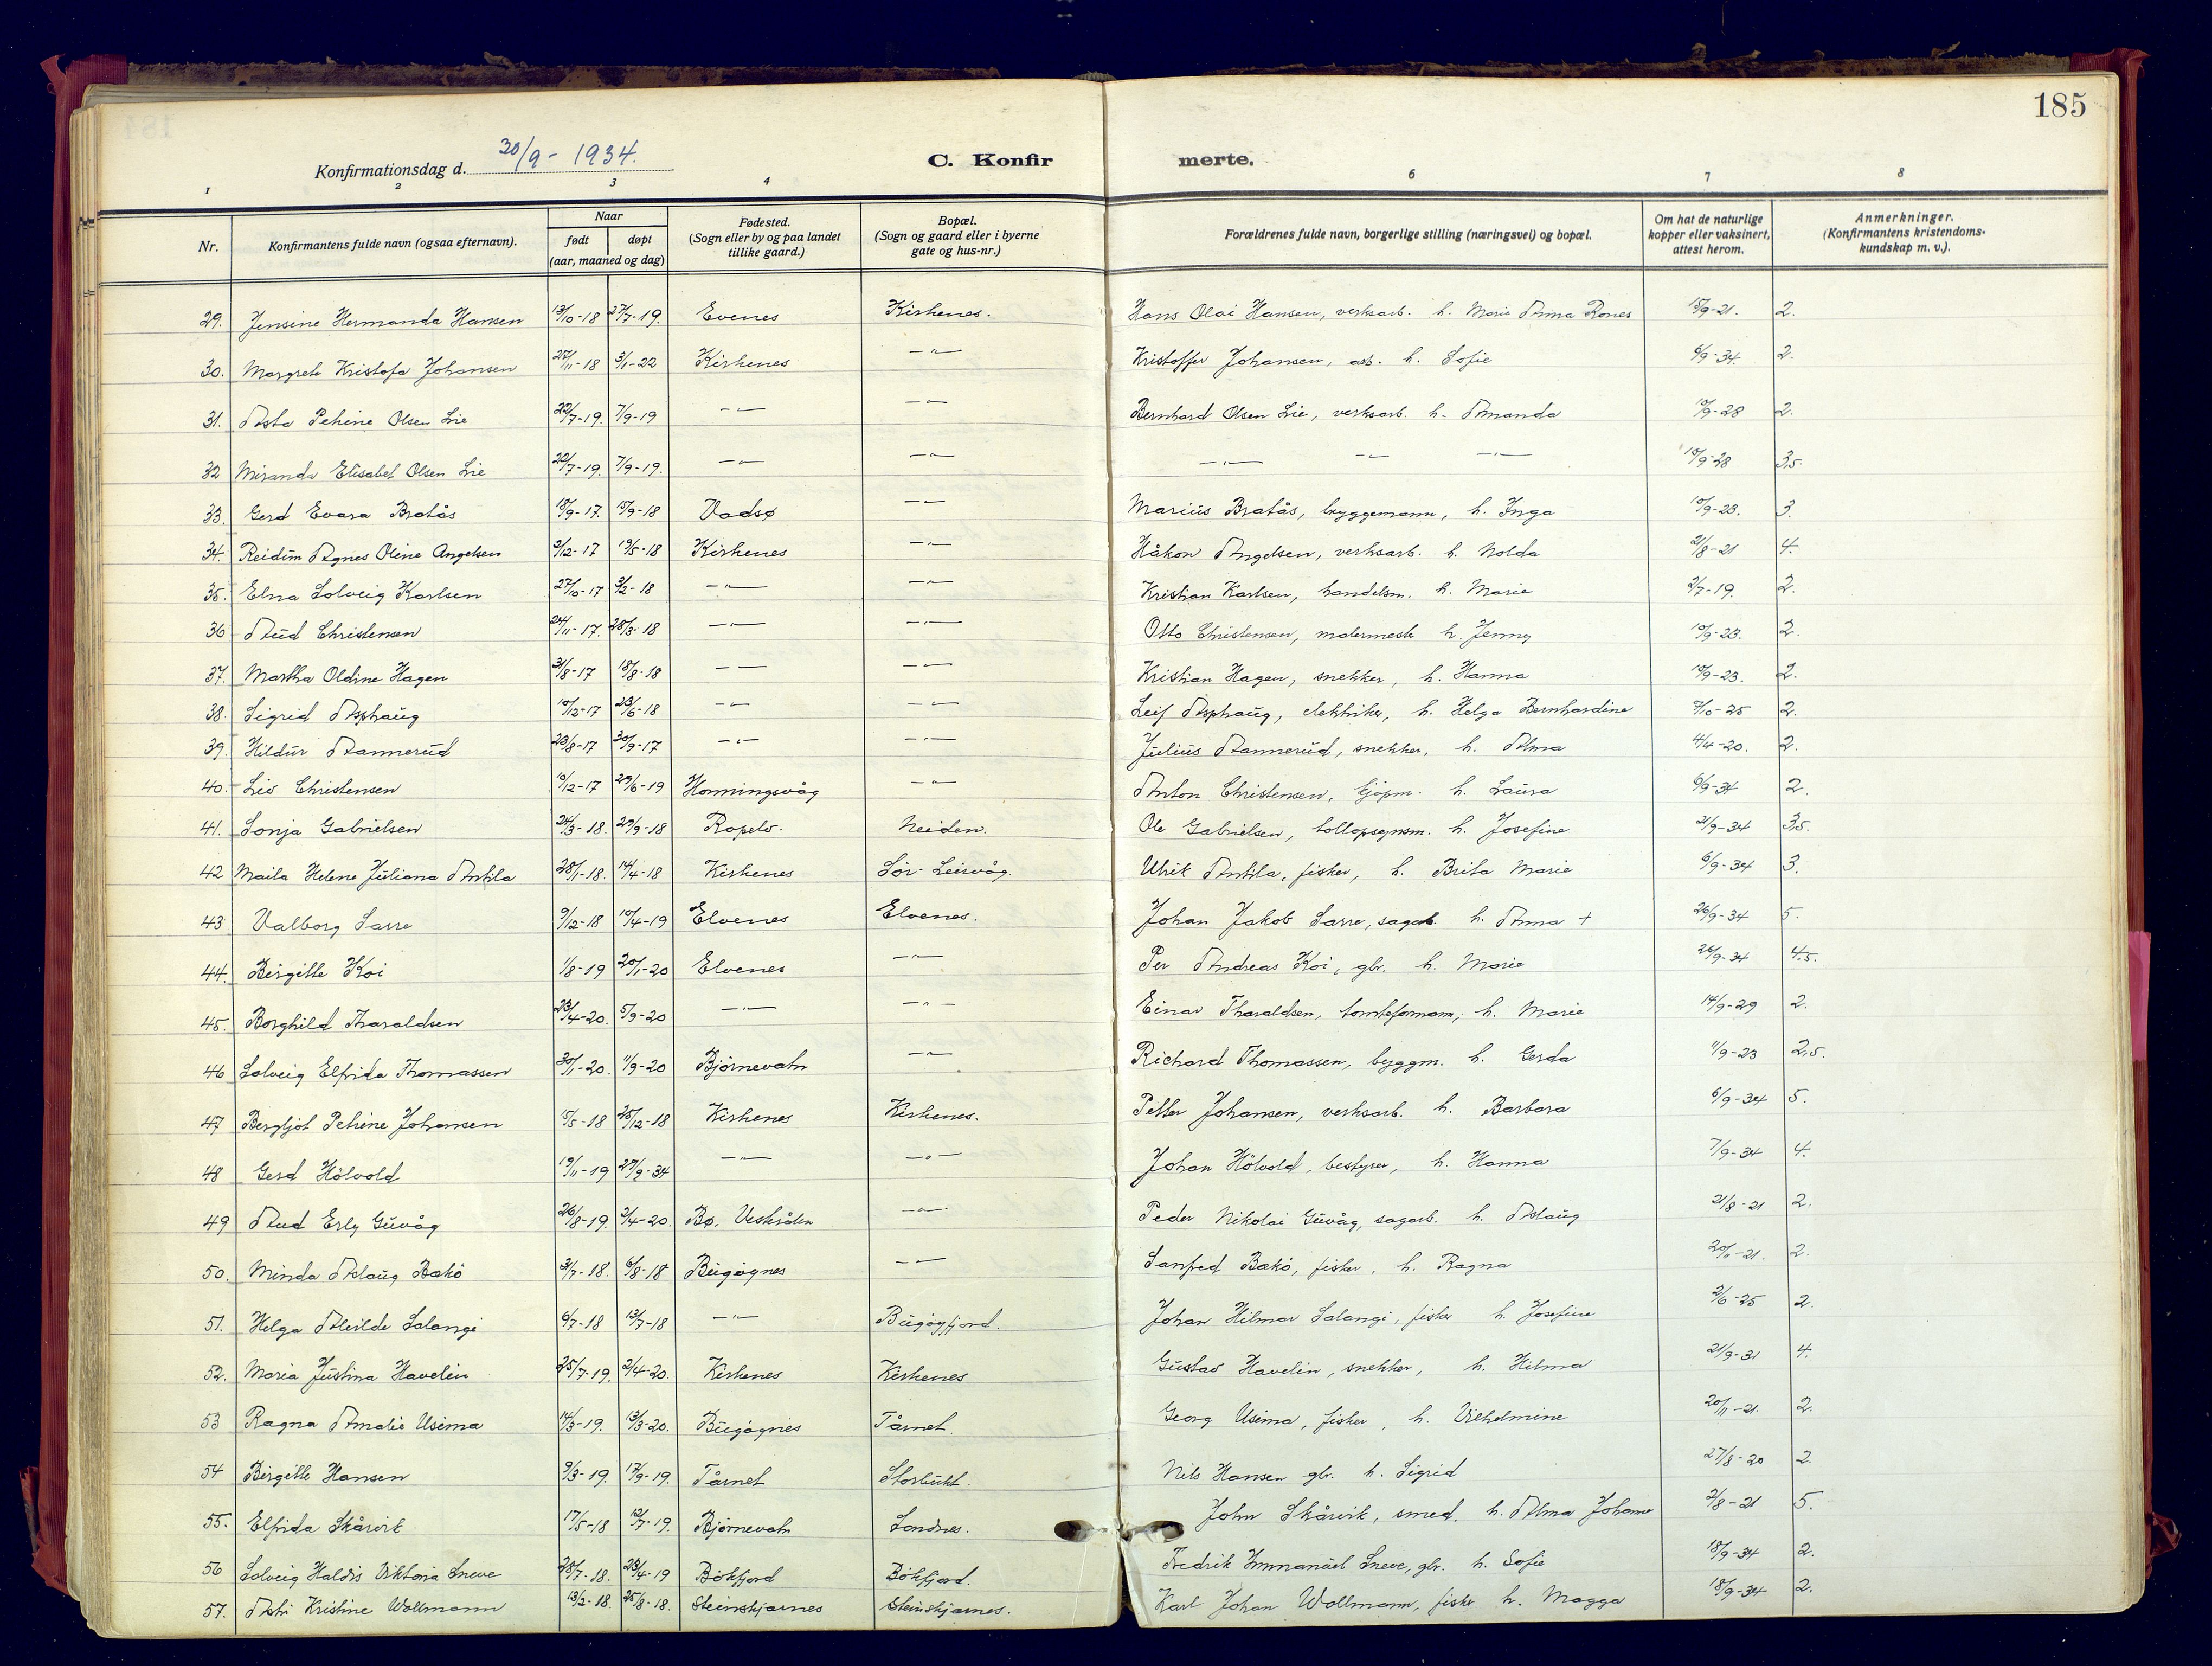 185
Konfirmationsdag d. 30/9 - 1934.
C. Konfir merte.
1 2 3 4 6 7 8
Nr.
Konfirmantens fulde navn (ogsaa efternavn).
Naar
født døpt
(aar, maaned og dag)
Fødested.
(Sogn eller by og paa landet
tillike gaard.)
Bopæl.
(Sogn og gaard eller i byerne
gate og hus-nr.)
Forældrenes fulde navn, borgerlige stilling (næringsvei) og bopæl.
Om hat de naturlige
kopper eller vaksinert,
attest herom.
Anmerkninger.
(Konfirmantens kristendoms-
kundskap m. v.).
29. Jensine Hermanda Hansen 13/10-18 27/7-19. Evenes Kirkenes. Hans Olai Hansen, verksarb. h. Marie Anna Rones 15/9-21. 2.
30. Margrete Kristofa Johansen 27/11-18 3/1-22 Kirkenes —"— Kristoffer Johansen, arb. h. Sofie 6/9-34. 2.
31. Asta Petrine Olsen Lie 22/7-19. 7/9-19 —"— —"— Bernhard Olsen Lie, verksarb. h. Amanda 10/9-28 2.
32 Miranda Elisabet Olsen Lie 20/7-19. 7/9-19. —"— —"— —"— —"— —"— 10/9-28 3,5.
33. Gerd Evara Bratås 18/9-17. 15/9-18 Vadsø —"— Marius Bratås, bryggemann, h. Inga 10/9-23. 3.
34. Reidun Agnes Oline Angelsen 2/12-17 19/5-18 Kirkenes —"— Håkon Angelsen, verksarb. h. Nolda 21/8-21 4.
35. Elna Solveig Karlsen 27/10-17 3/2-18 —"— —"— Kristian Karlsen, handelsm. h. Marie 2/7-19. 2.
36 Aud Christensen 24/11-17. 28/3-18 —"— —"— Otto Christensen, malermest. h. Jenny 10/9-23. 2.
37. Martha Oldine Hagen 31/8-17 18/8-18 —"— —"— Kristian Hagen, snekker, h. Hanna 10/9-23. 2.
38. Sigrid Asphaug 10/12-17 23/6-18 —"— —"— Leif Asphaug, elektriker, h. Helga Bernhardine 7/10-25 2.
39. Hildur Aannerud 23/8-17 30/9-17 —"— —"— Julius Aannerud, snekker, h. Alma 4/4-20. 2.
40. Liv Christensen 10/12-17 29/6-19 Honningsvåg —"— Anton Christensen, kjøpm. h. Laura 6/9-34 2.
41. Sonja Gabrielsen 24/3-18. 29/9-18 Ropelv. Neiden. Ole Gabrielsen, tollopsynsm. h. Josefine 21/9-34 3,5.
42 Maila Helene Juliana Antila 28/1-18. 14/4-18 Kirkenes Sør-Leirvåg. Ulrik Antila, fisker, h. Brita Marie 6/9-34 3.
43 Valborg Sarre 9/12-18 10/4-19 Elvenes Elvenes. Johan Jakob Sarre, sagarb. h. Anna + 26/9-34 5.
44. Birgitte Koi 1/8-19 20/1-20 Elvenes —"— Per Andreas Koi, gbr. h. Marie 26/9-34 4.5.
45. Borghild Tharaldsen 23/4-20. 5/9-20 —"— —"— Einar Tharaldsen, tomteformann, h. Marie 14/9-29 2.
46 Solveig Elfrida Thomassen 30/1-20. 11/9-20 Bjørnevatn —"— Richard Thomassen, byggm. h. Gerda 11/9-23 2,5.
47 Bergljot Petrine Johansen 15/5-18 25/12-18 Kirkenes Kirkenes. Petter Johansen, verksarb. h. Barbara 6/9-34 5.
48 Gerd Hölvold 19/11-19 29/9-34 —"— —"— Johan Hölvold, bestyrer, h. Hanna 7/9-34 4.
49 Aud Erly Guvåg 26/8-19. 2/4-20. Bø, Vesterålen —"— Peder Nikolai Guvåg, sagarb. h. Aslaug 21/8-21 2.
50. Minda Aslaug Bakö 31/7-18. 6/8-18 Bugøynes —"— Sanfred Bakö, fisker, h. Ragna 20/11-21. 2.
51. Helga Alvilde Salangi 6/7-18 13/7-18 —"— Bugøyfjord. Johan Hilmar Salangi, fisker h. Josefine 2/6-25 2.
52. Maria Justina Havelin 25/7-19. 2/4-20. Kirkenes Kirkenes Gustav Havelin, snekker, h. Hilma 21/9-31 4.
53 Ragna Amalie Usima 14/3-19. 13/3-20. Bugøynes Tårnet. Georg Usima, fisker, h. Vilhelmine 20/11-21. 2.
54 Birgitte Hansen 9/3-19. 17/9-19. Tårnet Storbukt. Nils Hansen gbr. h. Sigrid 27/8-20 2.
55. Elfrida Skårvik 17/5-18 12/7-19. Bjørnevatn Sandnes. John Skårvik, smed. h. Alma Johanne 2/8-21 5.
56 Solveig Haldis Viktoria Sneve 28/7-18. 23/4-19 Bökfjord Bökfjord. Fredrik Immanuel Sneve, gbr. h. Sofie 18/9-34 2.
57. Astri Kristine Wollmann 13/2-18. 25/8-18. Steinskjærnes Steinskjærnes. Karl Johan Wollmann, fisker h. Magga 18/9-34 2.